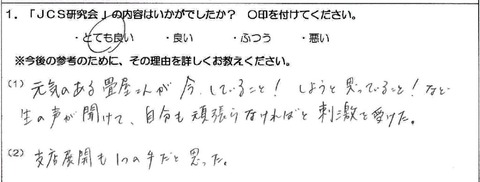 1. 「JCS研究会」の内容はいかがでしたか? 〇印を付けてください。
・とても良い ・良い ・ふつう ・悪い
※今後の参考のために、その理由を詳しくお教えください。
(1) 元気のある畳屋さんが今、していること! しようと思っていること! など
生の声が聞けて、自分も頑張らなければと刺激を受けた。
(2) 支店展開も1つの手だと思った。